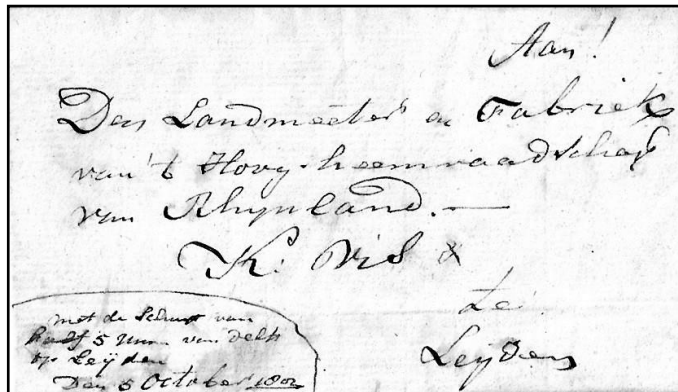 Aan!
Den Landmeeter en Fabriek
van 't Hoog-heemraadschap
van Rhynland. —
K: Vis &
te
Leyden
met de Schuyt van
half 5 Uuren van Delft
op Leyden
Den 5 October 1802